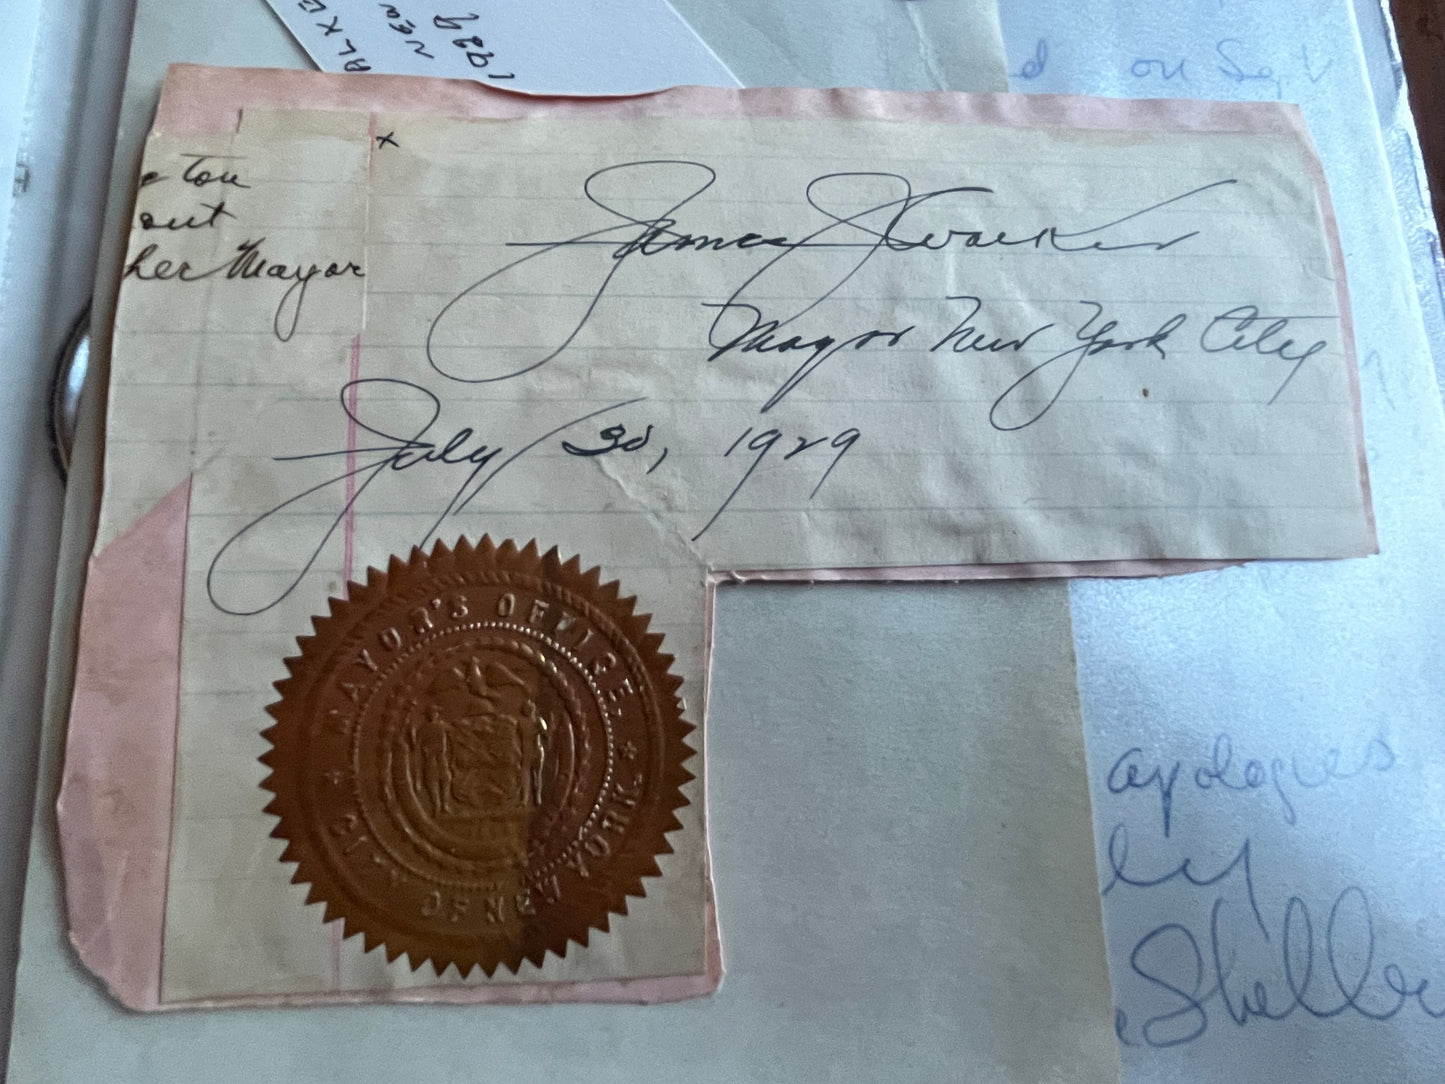 ALKE
NEW
1929
d on Sq V
ton
out
her Mayor
x
James J Walker
Mayor New York City
July 30, 1929
MAYOR'S OFFICE
OF NEW YORK
apologies
ly
Shelley